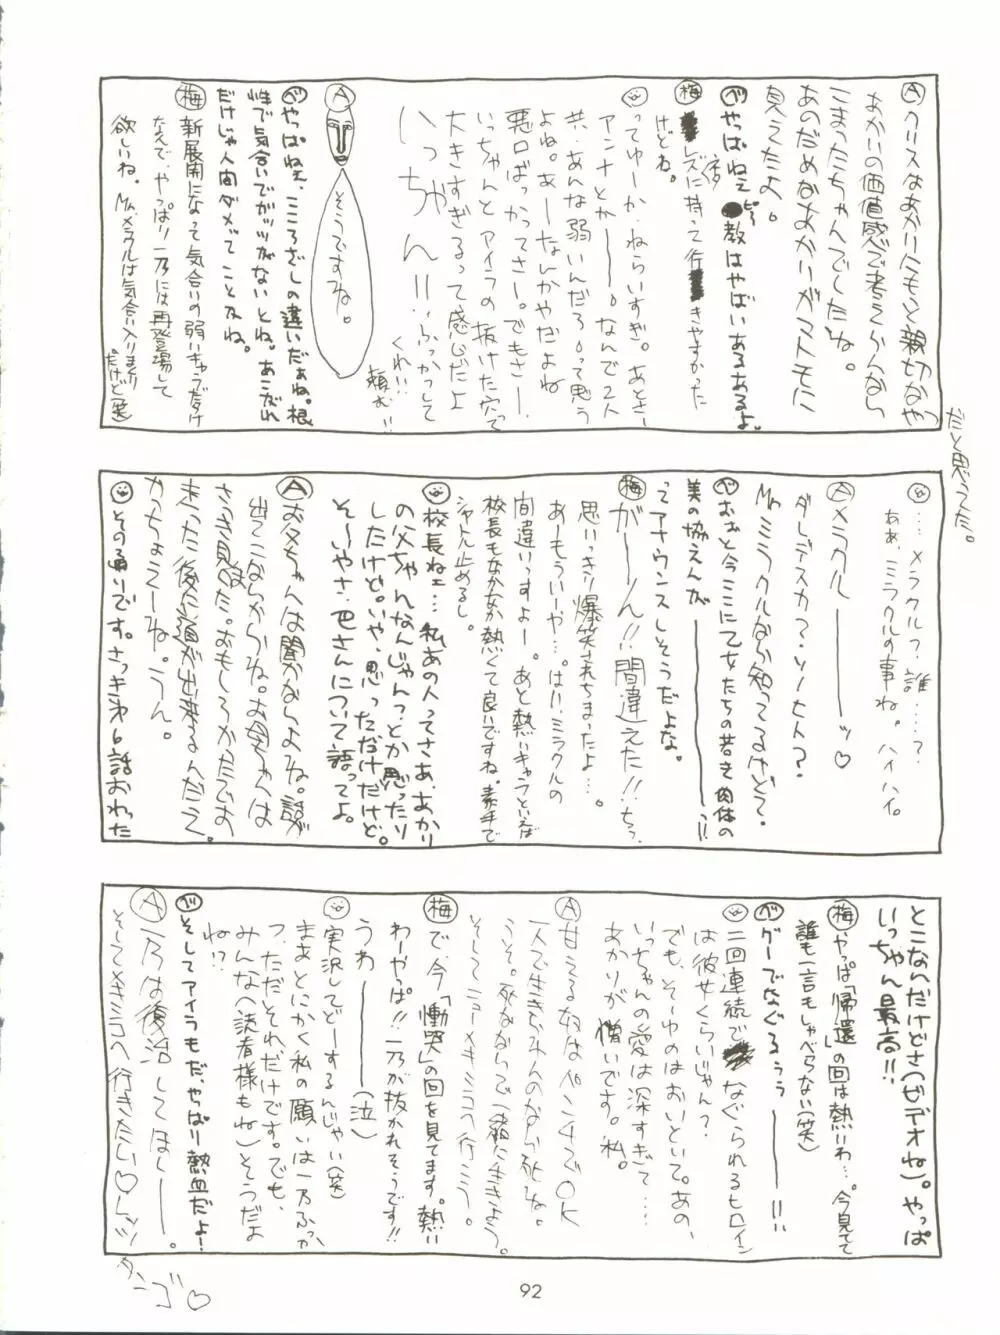 Ⓐクリスはあかりにもっと親切なやつ
だと思ってた。
あかりの価値感で考えらんなら
こまったちゃんでしたね。
あのだめなあかりがマトモに
見えたよ。
べやっぱねぇ●教はやばいあるあるよ。
梅
けどね。
ってゆーか、ねらいすぎ。あとさー
アンナとかー。なんで2人
共、あんな弱いんだろーって思う
よね。あーなんかやだよね
悪口ばっかってさー。でもさー、
いっちゃんとアイラの抜けた穴って
大きすぎるって感じだよ
いっちゃん!!ふっかつして
くれ!!
頼む!!
Ⓐ
そうですね。
べやっぱねぇ、こころざしの違いだぁね。根
性で気合いでガッツがないとね。あこがれ
だけじゃ人間ダメってことよね。
梅新展開になって気合いの弱いキャラだらけ
なんで、やっぱり一乃には再登場して
欲しいね。Mr.メラクルは気合い入りまくり
だけど(笑)
……メラクル?誰……?
ああ、ミラクルの事ね。ハイハイ。
Ⓐメラクルーーーッ♡
ダレデスカ?ソノヒト?
Mr.ミラクルなら知ってるけどて。
べおぉっと今ここに乙女たちの若き肉体の
美の協えんがーーーー!!
ってアナウンスしそうだよな。
梅がーーん!!間違えた!!ちっ
思いっきり爆笑されちまったよ…。
あーもういーや…。はい、ミラクルの
間違いっすよー。あと熱いキャラといえば
校長もなかなか熱くて良いですね。素手で
シャトル止めるし。
校長ねェ…私あの人ってさあ、あかり
の父ちゃんなんじゃんっ?とか思ったり
したけど。いや、思っただけだけど。
そーいやさ、巴さんについて語ってよ。
Ⓐお父ちゃんは聞かないよね。話が
出てこないからね。お母ちゃんは
さっき見てた。おもしろかったでおま
走った後に道が出来るんだって。
かっちょえーね。うん。
その通りです。さっき第6話おわった
とこなんだけどさ(ビデオね)。やっぱ
いっちゃん最高!!
梅やっぱ「帰還」の回は熱いわ…。今見てて
誰も一言もしゃべらない(笑)
べグーでなぐるぅぅーーー!!
二回連続でなぐられるヒロイン
は彼女くらいじゃん?
でも、そーゆのはおいといて。あの、
いっちゃんの愛は深すぎて…
あかりが憎いです。私。
Ⓐ甘える奴はパンチでOK
一人で生きらんのなら死ね。
うそ。死なないで一緒に生きよう。
そしてニューメキシコへ行こう。
梅で、今「慟哭」の回を見てます。熱い
わーやっぱ!!一乃が抜かれそうです!!
うわーーーー(泣)
実況してどーするんじゃい(笑)
まあとにかく私の願いは一乃ふっか
つ、ただそれだけです。でも、
みんな(読者様もね)そうだよ
ね!?
べそしてアイラもだ、やっぱり熱血だよ!
Ⓐ一乃は復活してほしーー。
そしてメキシコへ行きたい♡レッツ
ゴー♡
92